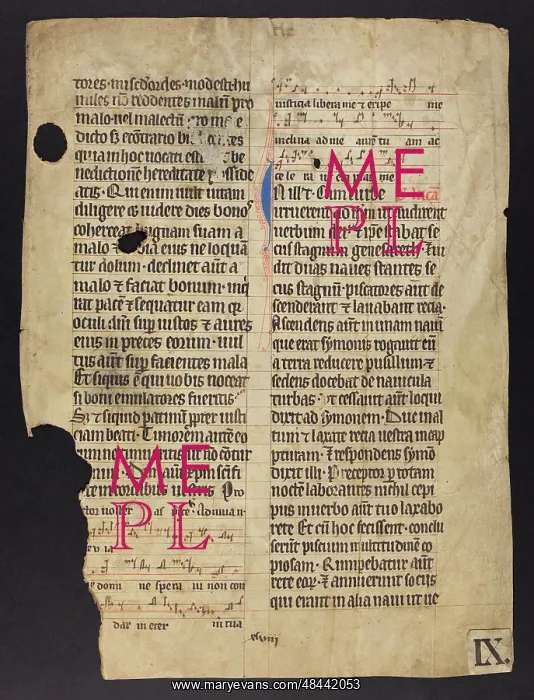 tores · misc̄dordes · modesti hu
miles nō reddentes malū pro
malo nel maledictū pro me e
dicto
quia in hoc uocati estis be
nedictionē hereditate posside
atis · Qui enim uult uitam
diligere et uidere dies bonos
coherceat linguam suam a
malo labia eius ne loquā
tur dolum · declinet aūt a
malo & faciat bonum · inq
rat pacē & sequatur eam q̄
oculi dn̄i sup iustos & aures
eius in preces eorum · uul
tus aūt sup facientes mala
Et siquis ē qui uobis noceat
si boni emulatores fueritis
Sz & siquid patimī ppter iusti
ciam beati · Timorem autē eo
Dn̄m autē xpm sc̄ifi
te in cordibus uestris · Pro
tor noster as pice · Ad uirtutē
euia
e domi ne spera ui non con
dar in eter nū in tua
iusticia libera me & eripe me
inclina ad me aurē tu am ac
Cum turbe
irruerent ad eum ut audirent
uerbum dei & ipse stabat se
cus stagnum genesareth · Eui
dit duas naues stantes se
cus stagnū · piscatores aūt de
scenderant & lauabant recia ·
Ascendens aūt in unam nauī
que erat symonis rogauit eū
a terra reducere pusillum · &
sedens docebat de nauicula
turbas · Vt cessauit aūt loqui
dixit ad symonem · Duc in al
tum & laxate recia uestra in cap
pturam · & respondens symō
dixit illi · Preceptor p totam
noctē laborantes nichil cepi
mus in uerbo aūt tuo laxabo
rete Et cū hoc fecissent · conclu
serūt piscium multitudinē co
piosam · Rumpebatur aūt
rete eorum · & annuerunt sociis
qui erant in alia naui ut ue
xlviii
IX.
ME
PL
ME
PL
www.maryevans.com/48442053